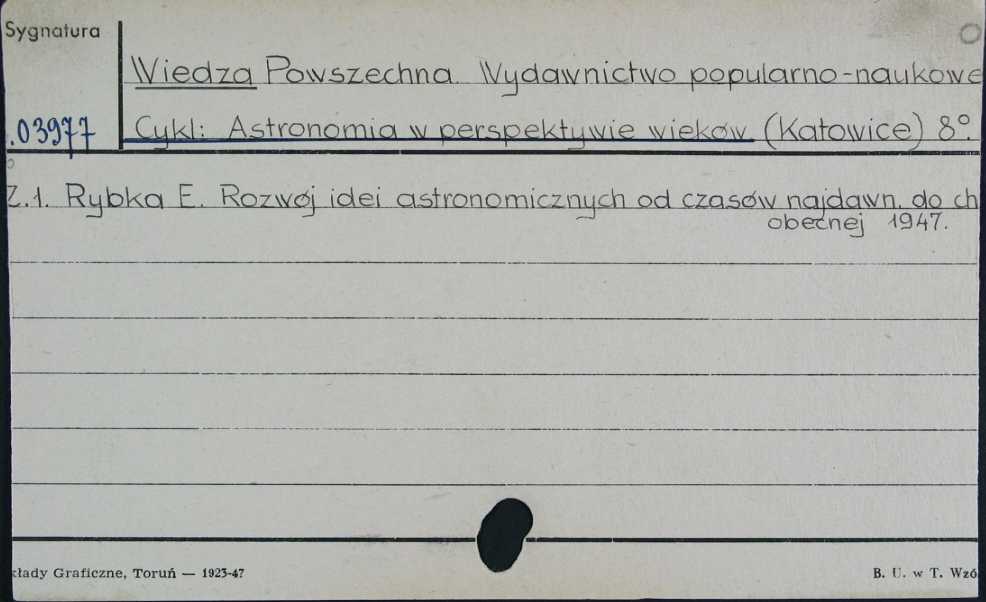 Sygnatura
Wiedza Powszechna. Wydawnictwo popularno-naukowe
.03977
Cykl: Astronomia w perspektywie wieków (Katowice) 8º.
Z.1. Rybka E. Rozwój idei astronomicznych od czasów najdawn. do ch
obecnej 1947.
kłady Graficzne, Toruń — 1923-47
B. U. w T. Wzó